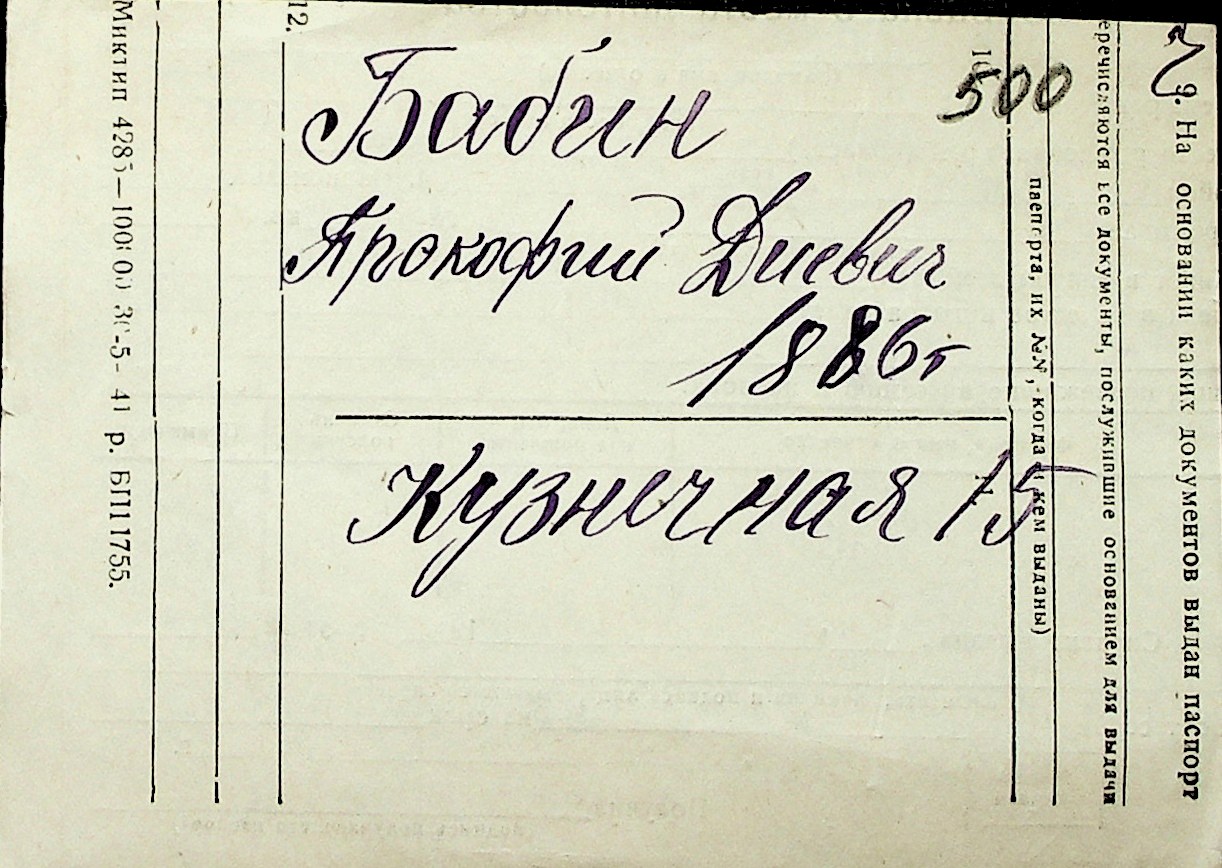 500
Бабин
Прокофий Диевич
1886 г
Кузнечная 15
9. На основании каких документов выдан паспорт
еречисляются все документы, послужившие основанием для выдачи
паспорта, их №№, когда и кем выданы)
12.
Миктип 4285—100.000 30-5-41 р. БП11755.